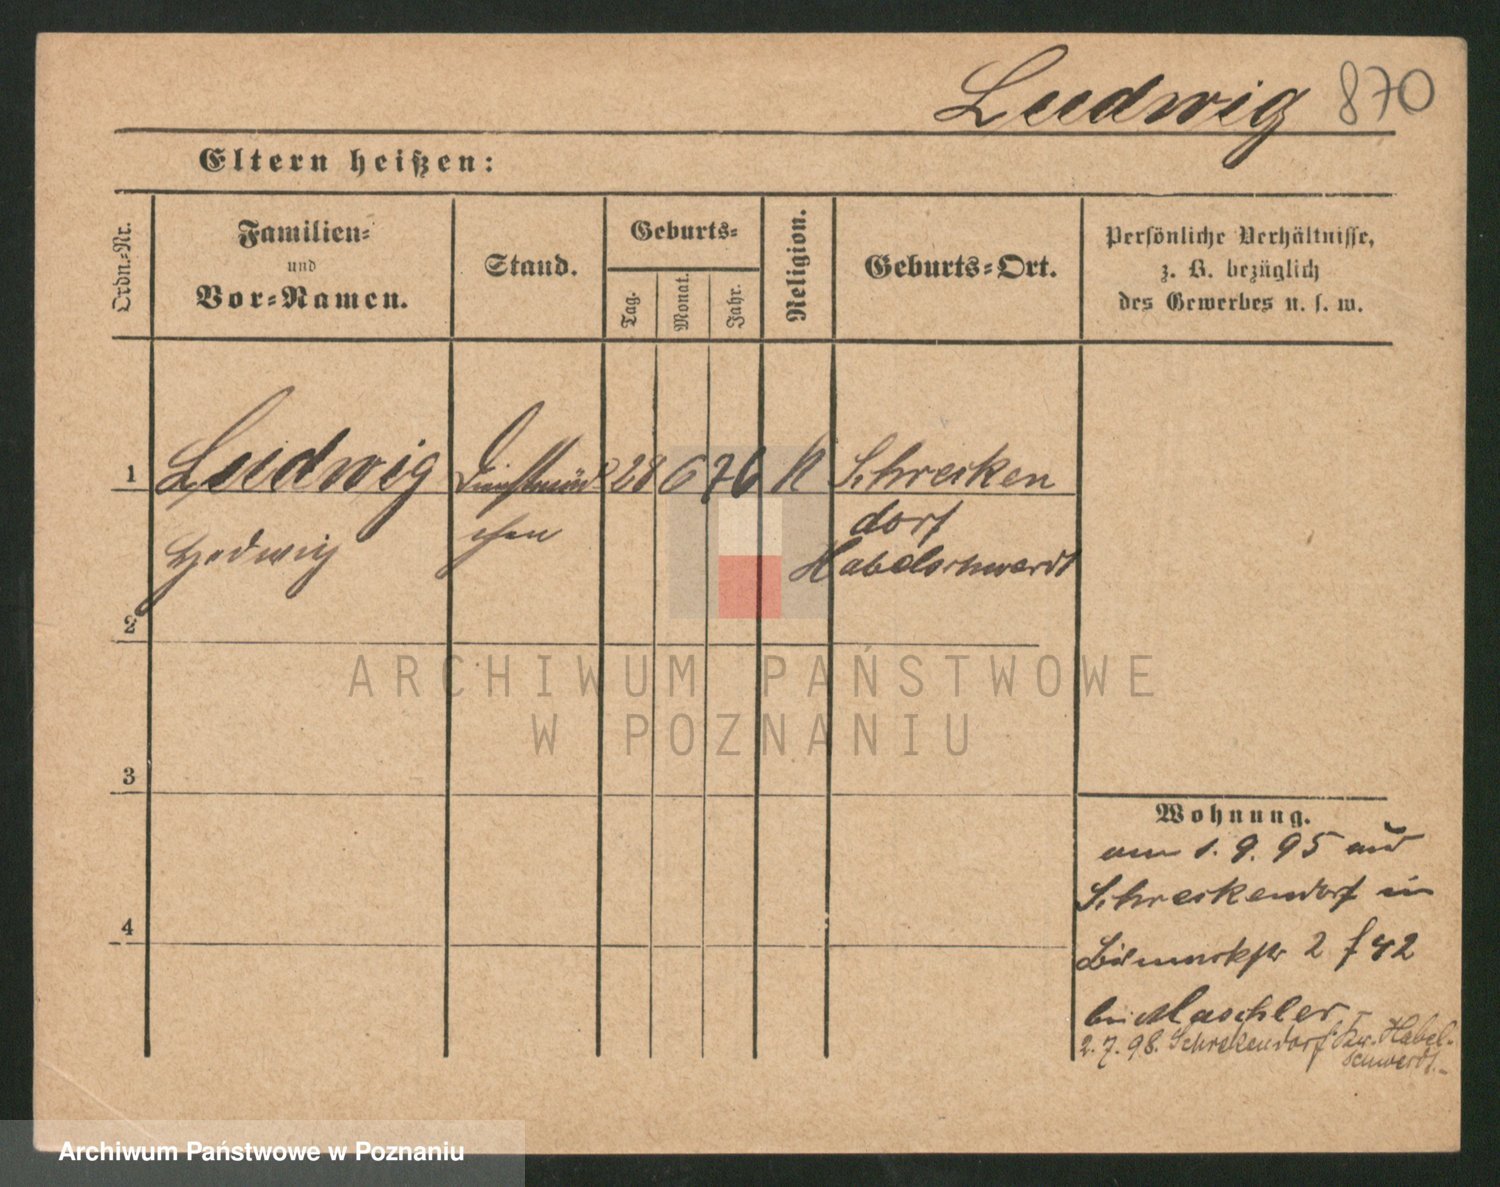 Ludwig 870
Eltern heißen:
Ordn.-Nr.
Familien-
und
Vor-Namen.
Stand.
Geburts-
Tag.
Monat.
Jahr.
Religion.
Geburts-Ort.
Persönliche Verhältnisse,
z. B. bezüglich
des Gewerbes u. s. w.
1 Ludwig Dienstmäd 28 6 76 K Schrecken
Hedwig chen dorf
Habelschwerdt
2
3
4
Wohnung.
am 1. 9. 95 aus
Schreckendorf in
Bismarckstr 2 f 42
bei Maschler
2. 7. 98. Schrekendorf Krs. Habel-
schwerdt.
ARCHIWUM PAŃSTWOWE
W POZNANIU
Archiwum Państwowe w Poznaniu